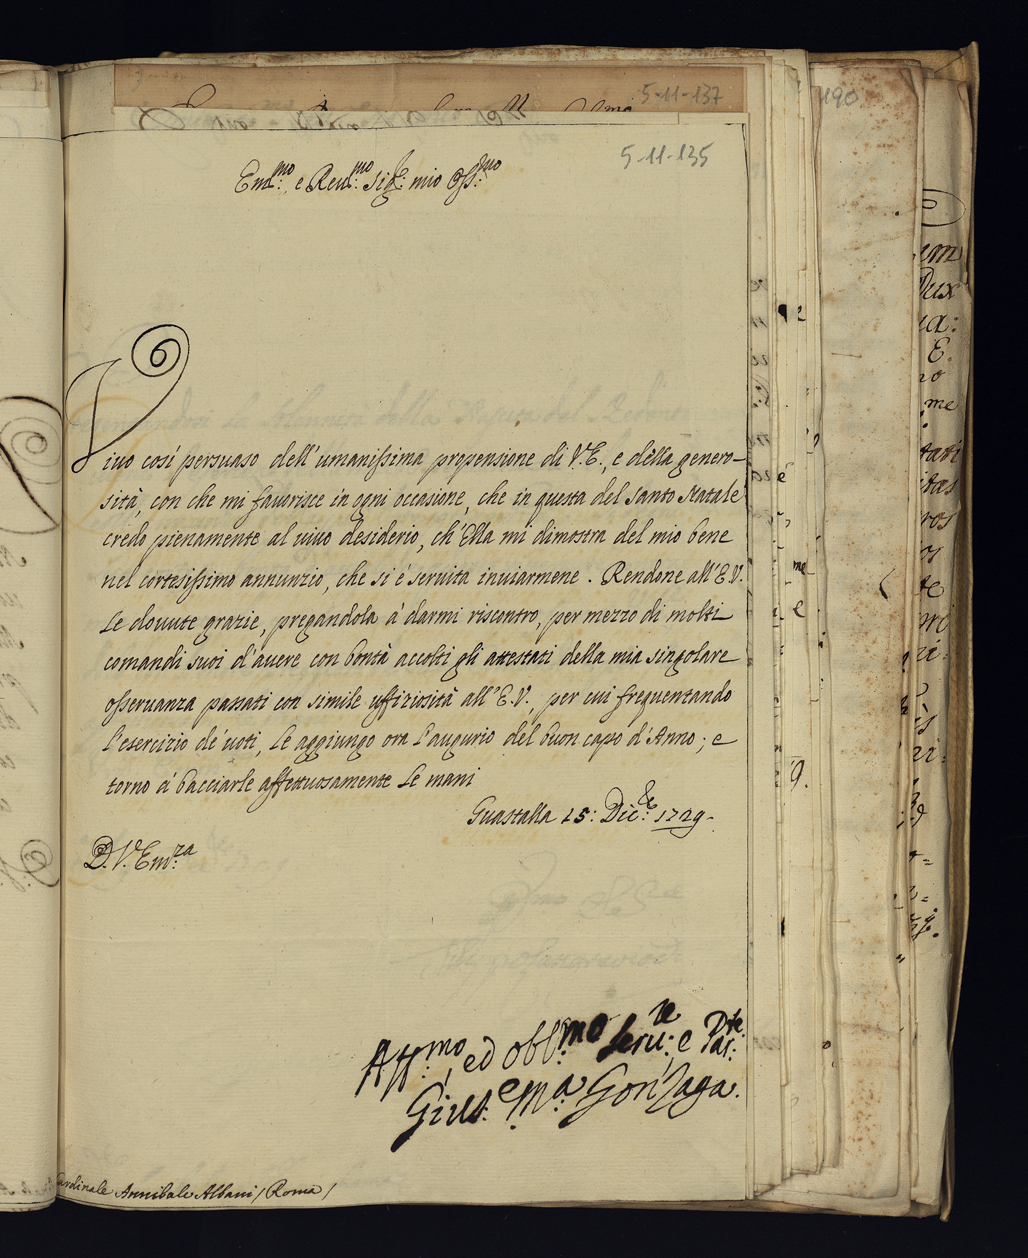 5-11-137
190
5-11-135
Em.mo e Reu.mo Sig.re mio Oss.mo
Viuo così persuaso dell'umanissima propensione di V.E., e della genero-
sità, con che mi fauorisce in ogni occasione, che in questa del Santo Natale
credo pienamente al uiuo desiderio, ch'Ella mi dimostra del mio bene
nel cortesissimo annunzio, che si è seruita inuiarmene. Rendone all'E.V.
le douute grazie, pregandola à darmi riscontro, per mezzo di molti
comandi suoi d'auere con bontà accolti gli attestati della mia singolare
osseruanza passati con simile uffiziosità all'E.V., per cui frequentando
l'esercizio de' uoti, le aggiungo ora l'augurio del buon capo d'Anno; e
torno à bacciarle affettuosamente le mani
Guastalla 15: Dic.re 1729.
D.V. Em.za
Aff.mo, ed obbl.mo Seru.re e Par.te
Gius.e M.a Gonzaga.
Cardinale Annibale Albani / Roma /